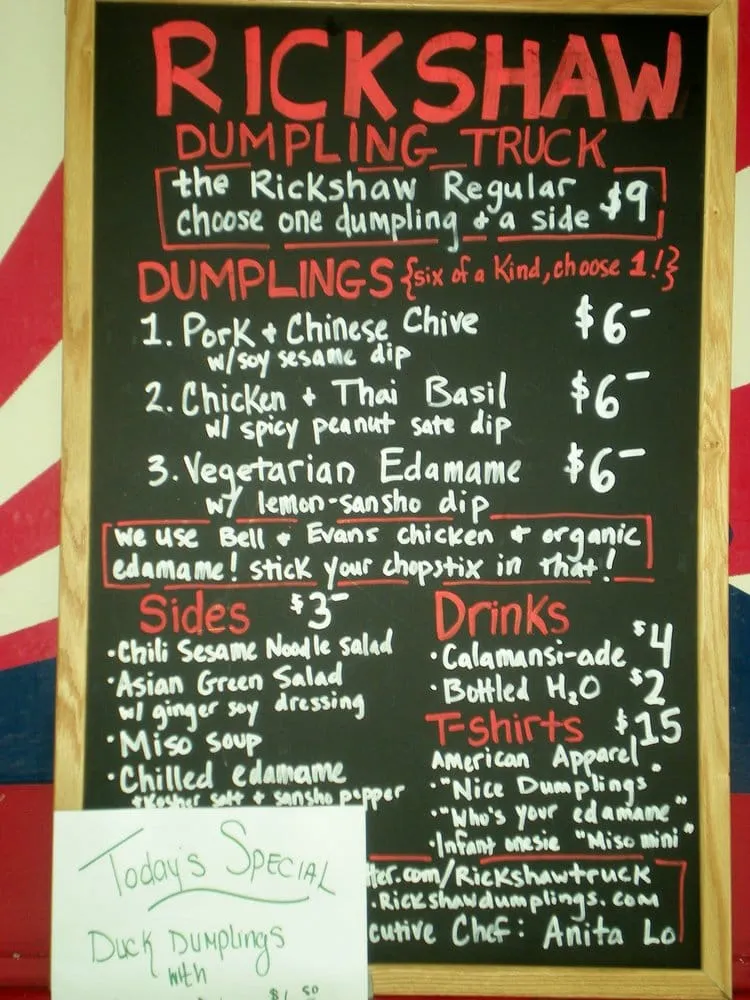 RICKSHAW
DUMPLING TRUCK
the Rickshaw Regular
choose one dumpling + a side $9
DUMPLINGS {six of a kind, choose 1!}
1. Pork + Chinese Chive $6-
w/soy sesame dip
2. Chicken + Thai Basil $6-
w/ spicy peanut sate dip
3. Vegetarian Edamame $6-
w/ lemon-sansho dip
We use Bell + Evans chicken + organic
edamame! stick your chopstix in that!
Sides $3-
•Chili Sesame Noodle Salad
•Asian Green Salad
w/ ginger soy dressing
•Miso soup
•Chilled edamame
+kosher salt + sansho pepper
Drinks
•Calamansi-ade $4
•Bottled H2O $2
T-shirts $15
American Apparel.
•"Nice Dumplings
•"Who's your edamame"
•Infant onesie "Miso mini"
ter.com/Rickshawtruck
.Rickshawdumplings.com
cutive Chef: Anita Lo
Today's Special
Duck Dumplings
with